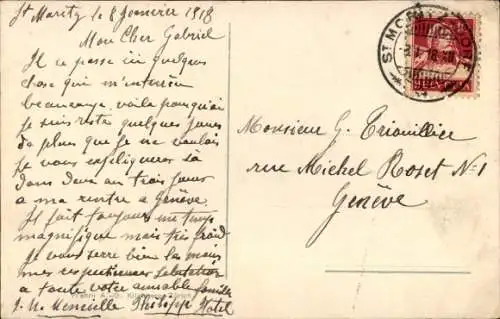 St Moritz le 8 Janvier 1918
Mon Cher Gabriel
Il ce passe ici quelques
chose qui m'interesse
beaucoup, voila pourquoi
je suis reste quelques jours
de plus que je ne voulais
je vous expliquerez sa
dans deux au trois jours
a ma rentre a Genève
Il fait toujours un temps
magnifique mais tres froid
Je vous serre bien la main
mes respectueuses salutations
a toute votre aimable famille
Philippe Hotel
Monsieur G. Triouillier
rue Michel Roset No 1
Genève
ST. MORITZ